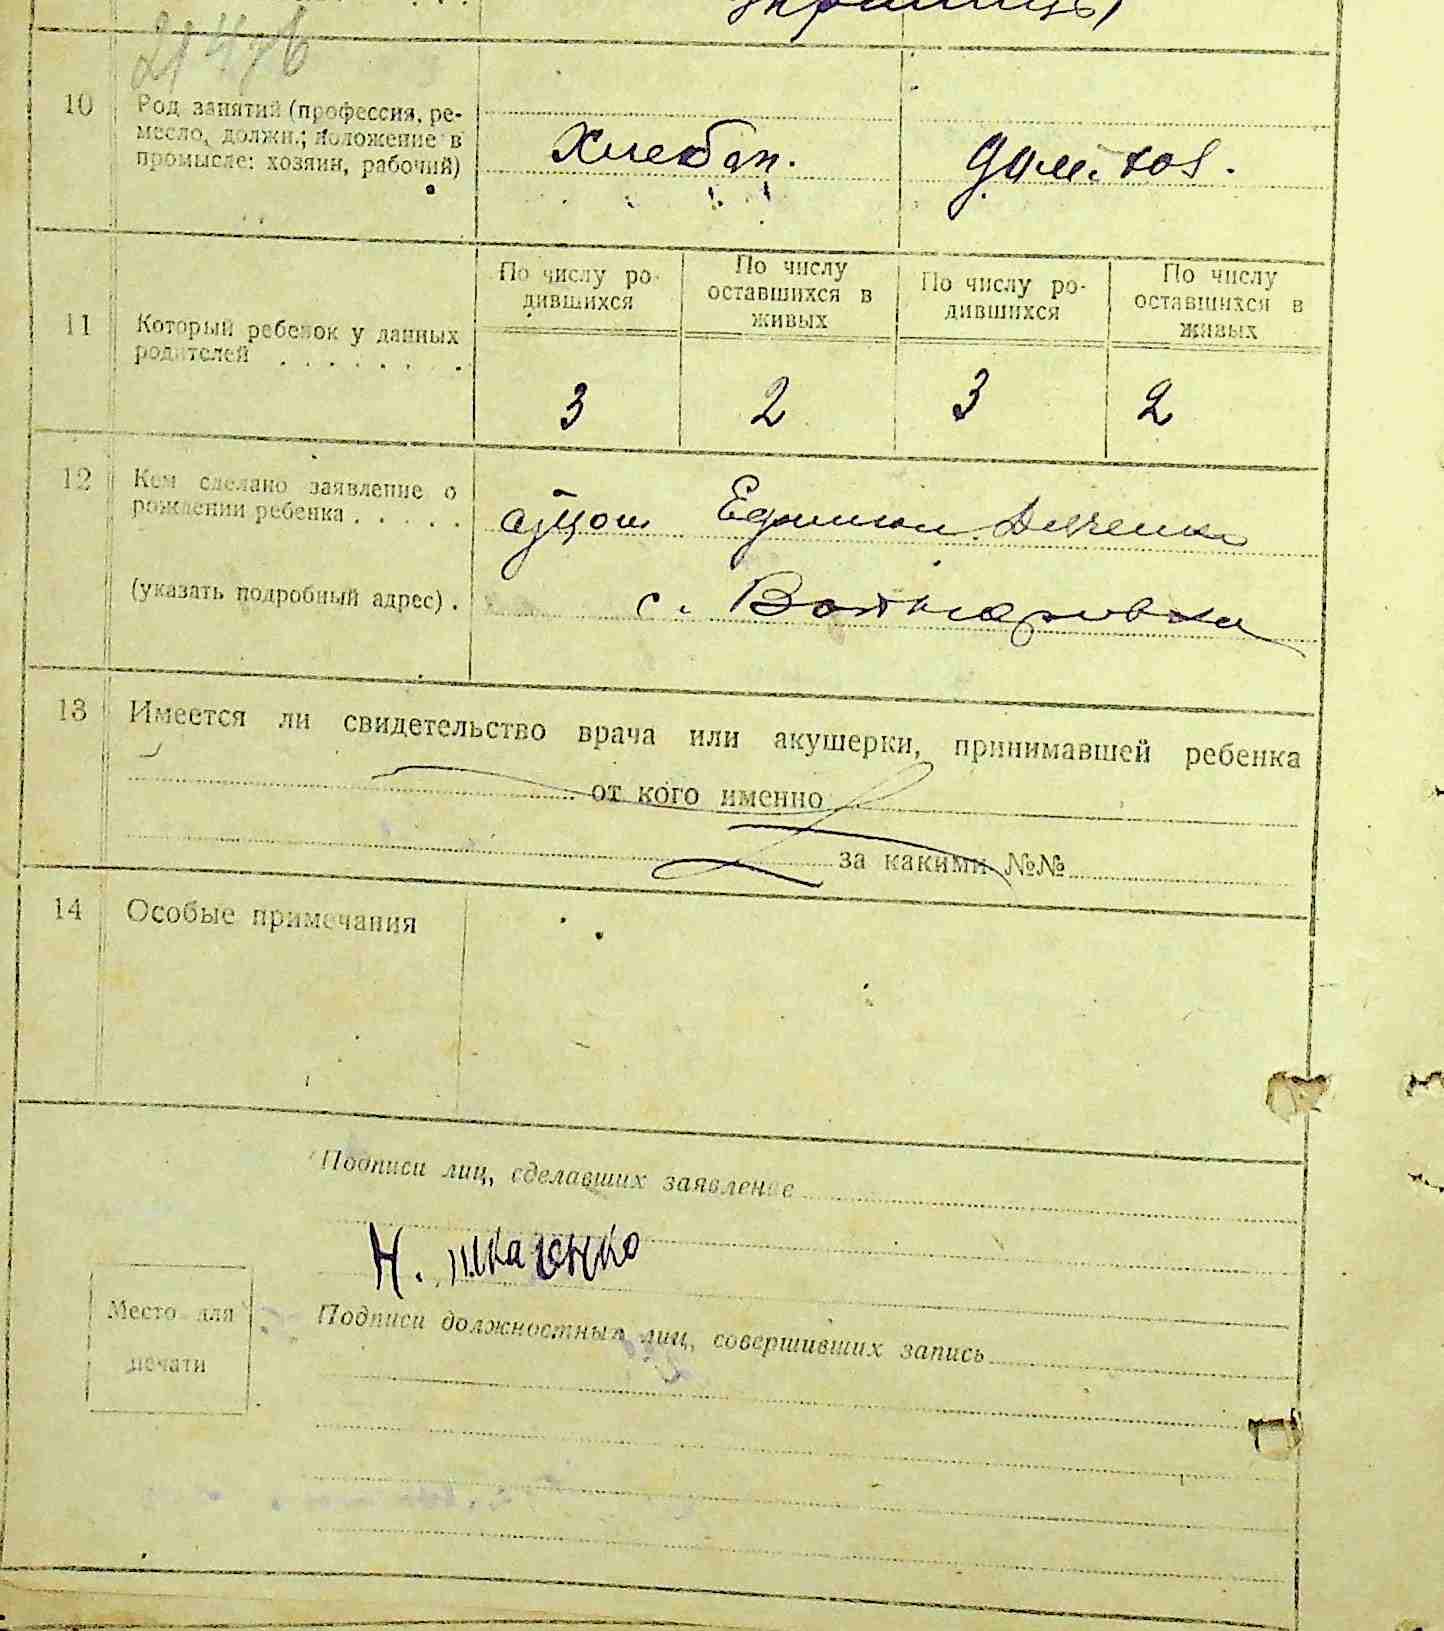 украинцы
10 Род занятий (профессия, ре-
месло, должн.; положение в
промысле: хозяин, рабочий)
Хлебоп. дом. хоз.
11 Который ребенок у данных
родителей . . . . . . . .
По числу ро-
дившихся
По числу
оставшихся в
живых
По числу ро-
дившихся
По числу
оставшихся в
живых
3 2 3 2
12 Кем сделано заявление о
рождении ребенка . . . . .
отцом
(указать подробный адрес) .
с.
13 Имеется ли свидетельство врача или акушерки, принимавшей ребенка
от кого именно
за какими №№
14 Особые примечания
Подписи лиц, сделавших заявление
Н.
Место для
печати
Подписи должностных лиц, совершивших запись